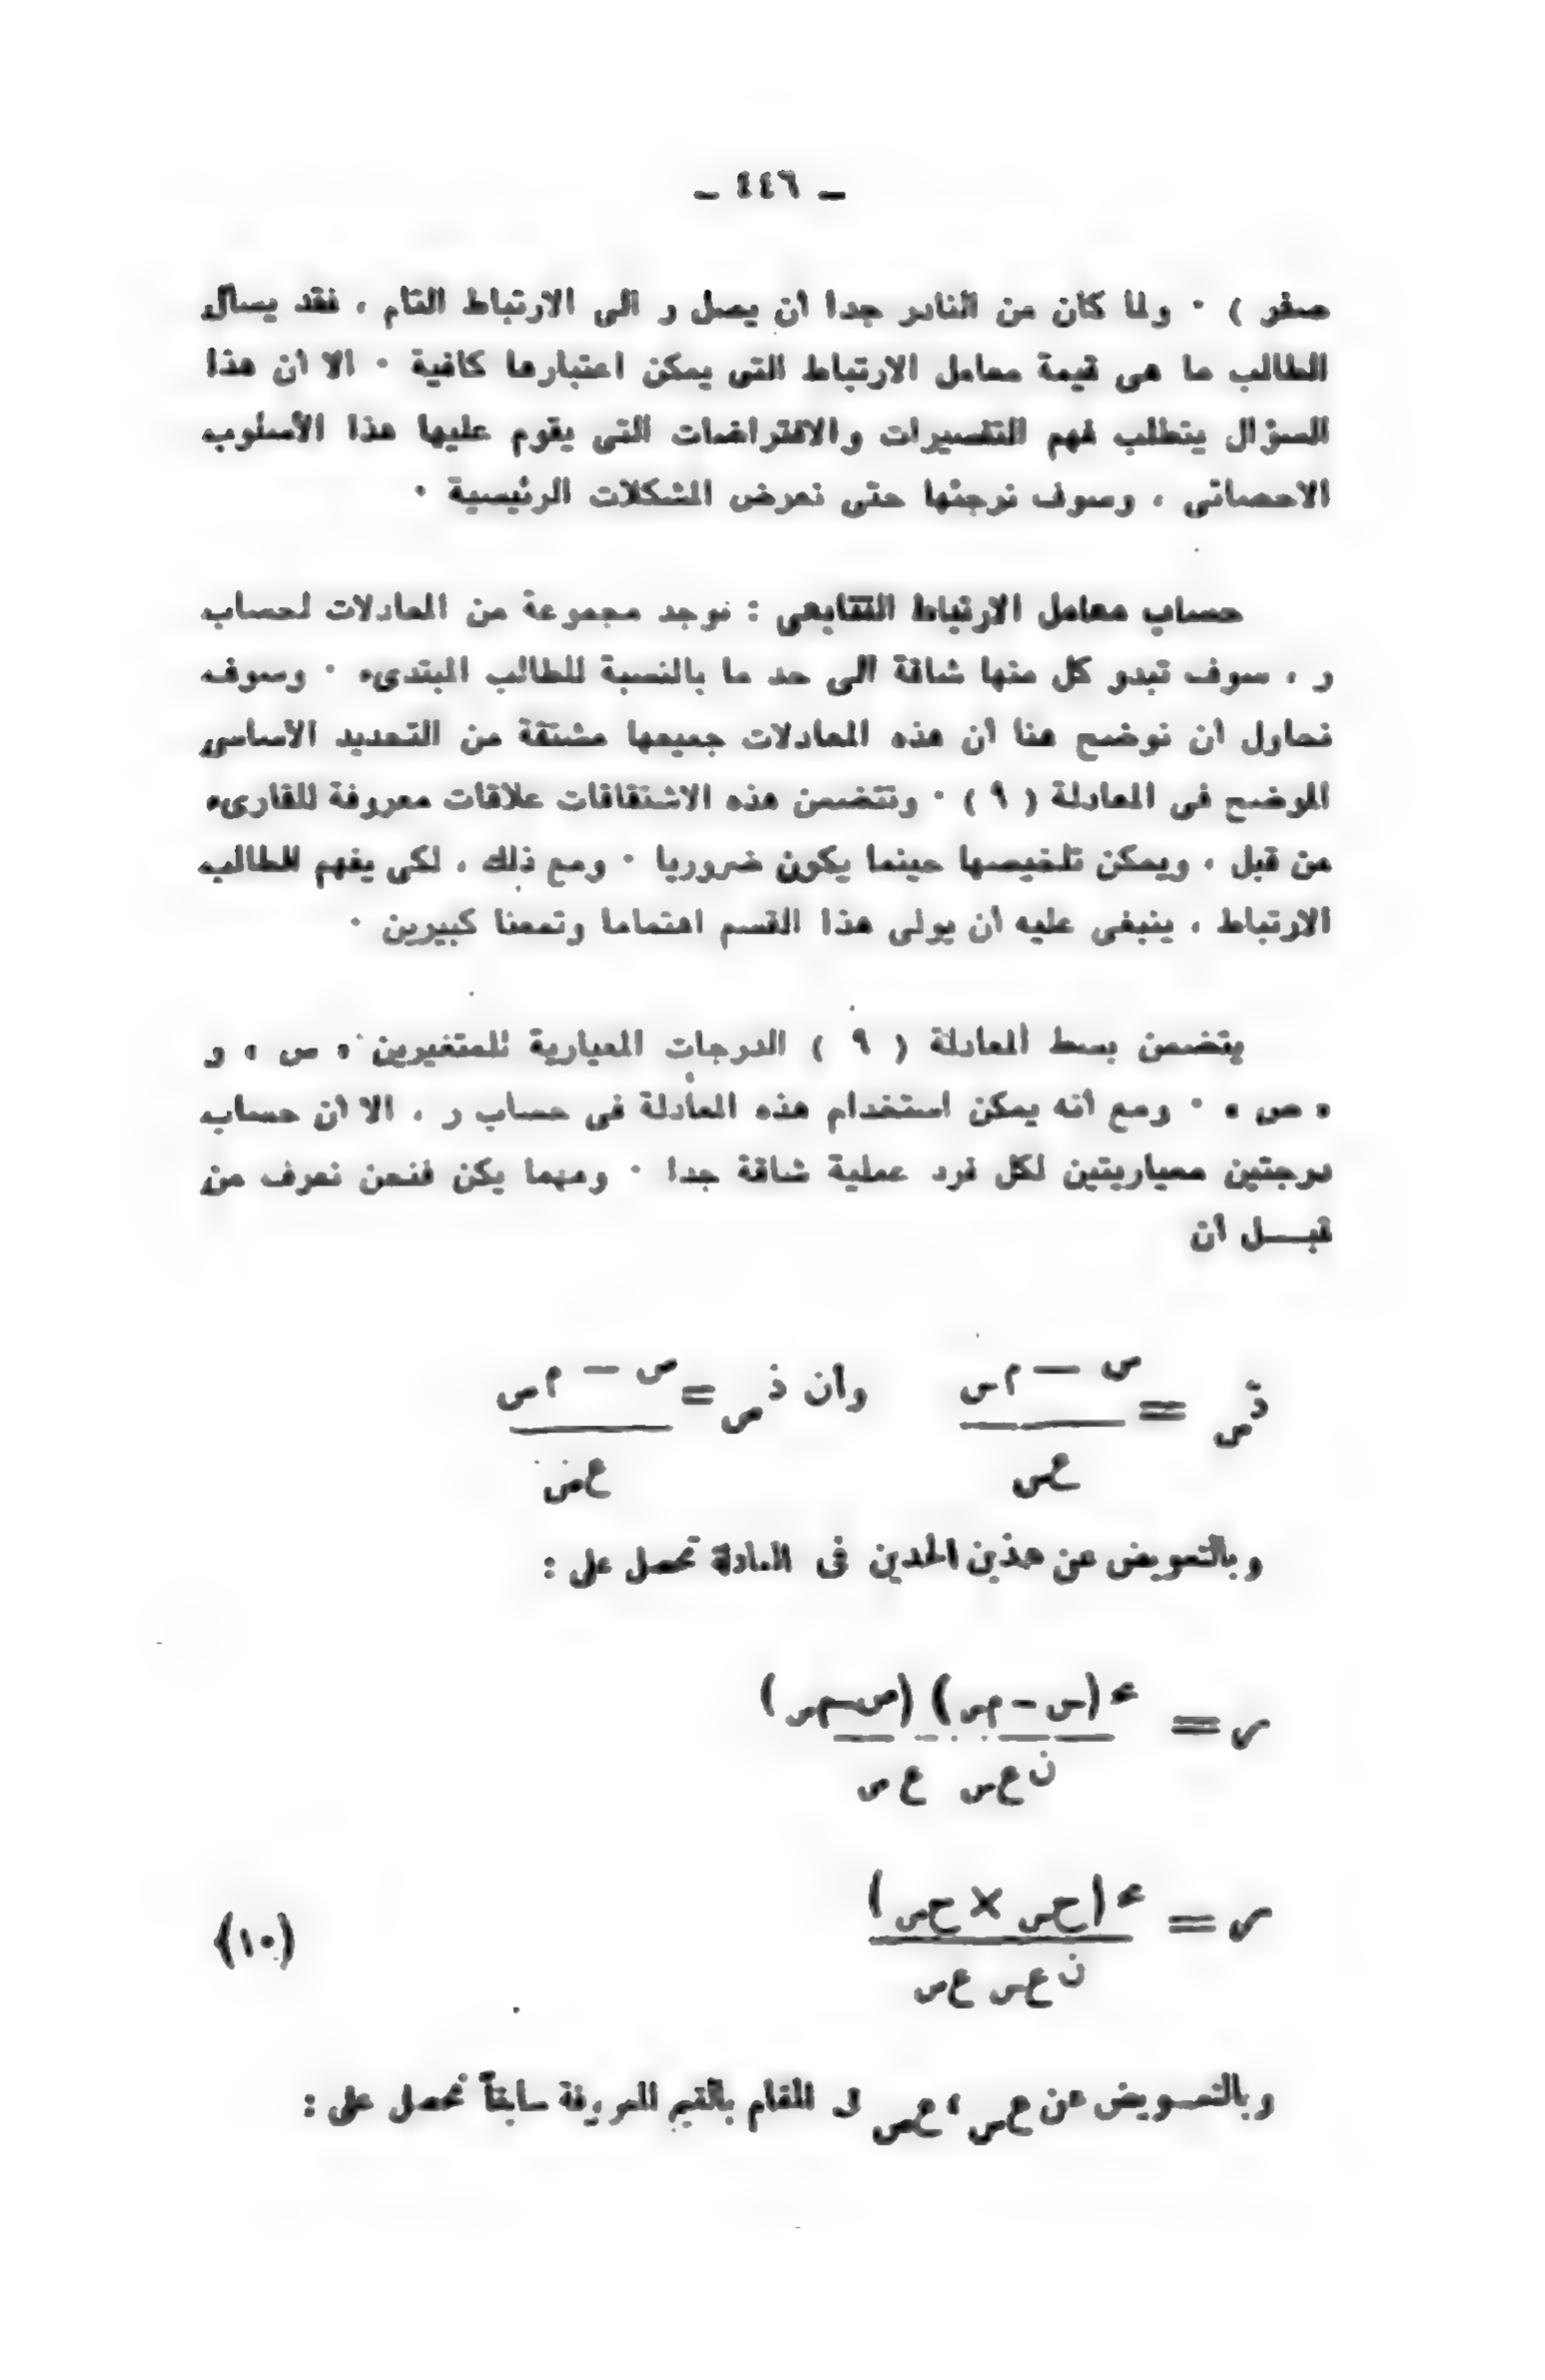 ــ ٤٤٦ ــ
صفر ) ٠ ولما كان من النادر جدا أن يصل ر الى الارتباط التام ، فقد يسأل
الطالب ما هى قيمة معامل الارتباط التى يمكن اعتبارها كافية ٠ الا أن هذا
السؤال يتطلب فهم التفسيرات والافتراضات التى يقوم عليها هذا الأسلوب
الاحصائى ، وسوف نرجئها حتى نعرض المشكلات الرئيسية ٠
حساب معامل الارتباط التتابعى : توجد مجموعة من المعادلات لحساب
ر ، سوف تبدو كل منها شاقة الى حد ما بالنسبة للطالب المبتدىء ٠ وسوف
نحاول أن نوضح هنا أن هذه المعادلات جميعها مشتقة من التحديد الأساسى
الموضح فى المعادلة ( ٩ ) ٠ وتتضمن هذه الاشتقاقات علاقات معروفة للقارىء
من قبل ، ويمكن تلخيصها حينما يكون ضروريا ٠ ومع ذلك ، لكى يفهم الطالب
الارتباط ، ينبغى عليه أن يولى هذا القسم اهتماما وتمعنا كبيرين ٠
يتضمن بسط المعادلة ( ٩ ) الدرجات المعيارية للمتغيرين « س » و
« ص » ٠ ومع أنه يمكن استخدام هذه المعادلة فى حساب ر ، الا أن حساب
درجتين معياريتين لكل فرد عملية شاقة جدا ٠ ومهما يكن فنحن نعرف من
قبــل أن
ذس = س − مس وأن ذص = ص − مص
عس عص
وبالتعويض عن هذين الحدين فى المعادلة نحصل على :
ر = مجـ (س − مس) (ص − مص)
ن عس عص
ر = مجـ (حس × حص) (١٠)
ن عس عص
وبالتعــويض عن عس ، عص فى المقام بالقيم المعروفة سابقاً نحصل على :